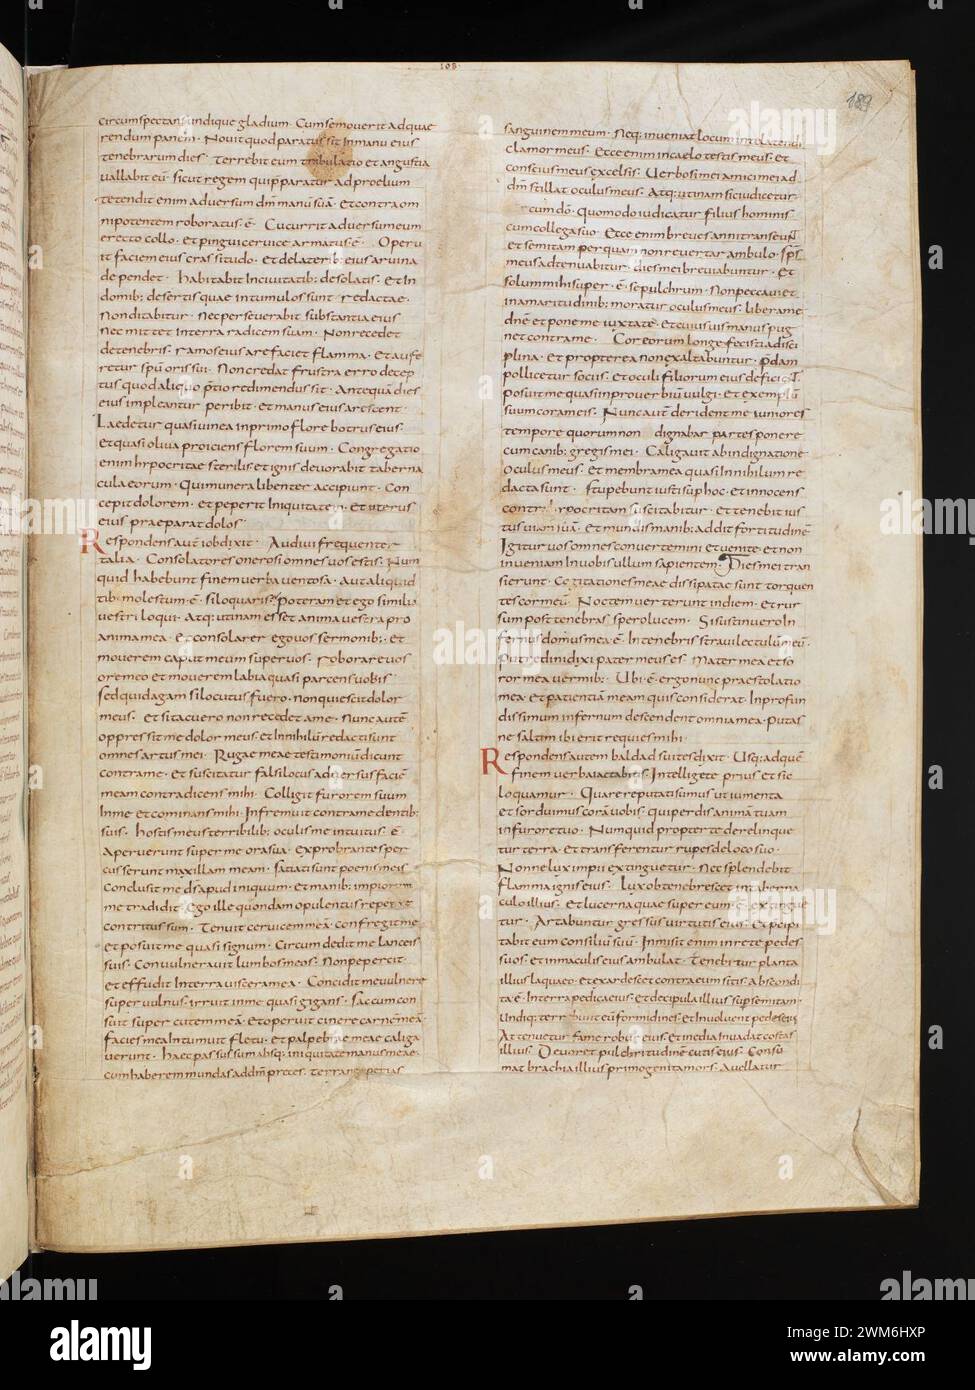 IOB
189
circumspectans undique gladium · Cum se moverit ad quae
rendum panem · Novit quod paratus sit in manu eius
tenebrarum dies · Terrebit eum tribulatio et angustia
vallabit eū · sicut regem qui p̄paratur ad proelium
tetendit enim adversum dm̄ manū suā · Et contra om
nipotentem roboratus · ē · Cucurrit adversum eum
erecto collo · et pingui cervice armatus · ē · Operu
it faciem eius crassitudo · et de laterib; eius arvina
dependet · habitabit In civitatib; desolatis · et In
domib; desertis quae in tumulos sunt redactae ·
Non ditabitur · Nec perseverabit substantia eius
nec mittet In terra radicem suam · Non recedet
de tenebris · ramos eius arefaciet flamma · Et aufe
retur spū oris sui · Non credat frustra errore decep
tus quod aliquo p̄tio redimendus sit · Antequā dies
eius impleantur peribit · et manus eius arescent ·
Laedetur quasi vinea in primo flore botrus eius ·
et quasi oliva proiciens florem suum · Congregatio
enim hypocritae sterilis et ignis devorabit taberna
cula eorum · Qui munera libenter accipiunt · Con
cepit dolorem · et peperit Iniquitatem · et uterus
eius praeparat dolos
Respondens autē iob dixit · Audivi frequenter
talia · Consolatores onerosi omnes vos estis · Num
quid habebunt finem verba ventosa · Aut aliquid
tib · molestum · ē · si loquaris · Poteram et ego similia
vestri loqui · Atq; utinam esset anima vestra pro
anima mea · Et consolarer ego vos sermonib; · et
moverem caput meum super vos · roborare vos
ore meo et moverem labia quasi parcens vobis
sed quid agam si locutus fuero · non quiescit dolor
meus · et si tacuero non recedet a me · Nunc autē
oppressit me dolor meus · et In nihilū redacti sunt
omnes artus mei · Rugae meae testimoniū dicunt
contra me · Et suscitatur falsilocus adversus faciē
meam contradicens mihi · Colligit furorem suum
In me et cominans mihi · Infremuit contra me dentib;
suis · hostis meus terribilib; oculis me intuitus · ē ·
Aperuerunt super me ora sua · Exprobrantes per
cusserunt maxillam meam · satiati sunt poenis meis
Conclusit me ds̄ apud iniquum · et manib; impiorum
me tradidit · Ego ille quondam opulentus repente
contritus sum · Tenuit cervicem meā · confregit me
et posuit me quasi signum · Circum dedit me lanceis
suis · Convulneravit lumbos meos · Non pepercit
et effudit In terra viscera mea · Concidit me vulnere
super vulnus · irruit in me quasi gigans · saccum con
sui super cutem meā · Et operui cinere carnē meā ·
facies mea Intumuit fletu · et palpebrae meae caliga
verunt · haec passus sum absq; iniquitate manus meae ·
cum haberem mundas ad dm̄ preces · Terra ne operias
sanguinem meum · Neq; inveniat locum In te latendi
clamor meus · Ecce enim in caelo testis meus · et
conscius meus excelsis · Verbosi mei amici mei ad
dm̄ stillat oculus meus · Atq; utinam sic iudicetur
vir cum dō · Quomodo iudicatur filius hominis
cum collega suo · Ecce enim breves anni transeunt
et semitam per quam non revertar ambulo · sps̄
meus adtenuabitur · dies mei breviabuntur · et
solum mihi super · ē · sepulchrum · Non peccavi et
in amaritudinib; moratur oculus meus · libera me
dn̄e et pone me iuxta te · Et cuiusvis manus pug
net contra me · Cor eorum longe fecisti a disci
plina · et propterea non exaltabuntur · p̄dam
pollicetur sociis · et oculi filiorum eius deficient ·
Posuit me quasi in proverbiū vulgi · et exemplū
sum coram eis · Nunc autē derident me iuniores
tempore quorum non dignabar patres ponere
cum canib; gregis mei · Caligavit ab indignatione
oculus meus · et membra mea quasi In nihilum re
dacta sunt · stupebunt iusti sup hoc · et innocens
contra hypocritam suscitabitur · et tenebit ius
tus viam suā · et mundis manib; addit fortitudinē
Igitur vos omnes convertemini et venite · et non
inveniam In vobis illum sapientem · Dies mei tran
sierunt · Cogitationes meae dissipatae sunt torquen
tes cor meū · Noctem verterunt in diem · et rur
sum post tenebras spero lucem · Si sustinuero In
fernus domus mea · ē · In tenebris stravi lectulū meū ·
Putredini dixi pater meus es · Mater mea et so
ror mea vermib; · Ubi · ē · ergo nunc praestolatio
mea · et patientiā meam quis considerat · In profun
dissimum infernum descendent omnia mea · Putas
ne saltim ibi erit requies mihi ·
Respondens autem baldad suites dixit · Usq; ad quē
finem verba iactabitis · Intelligete prius et sic
loquamur · Quare reputati sumus ut iumenta
et sorduimus corā vobis · Qui perdis animā tuam
in furore tuo · Numquid propter te derelinque
tur terra · et transferentur rupes de loco suo ·
Nonne lux impii extinguetur · Nec splendebit
flamma ignis eius · Lux obtenebrescet in taberna
culo illius · et lucerna quae super eum · ē · extingue
tur · Artabuntur gressus virtutis eius · et p̄cipi
tabit eum consiliū suū · Inmisit enim in rete pedes
suos · et in maculis eius ambulat · Tenebitur planta
illius laqueo · et exardescet contra eum sitis · Abscondi
ta · ē · In terra pedica eius · et decipula illius sup semitam ·
Undiq; terrebunt eū formidines · et Involvent pedes eius
Attenuetur fame robur eius · et inedia invadat costas
illius · Devoret pulchritudinē cutis eius · Consu
mat brachia illius primogenita mors · Avellatur